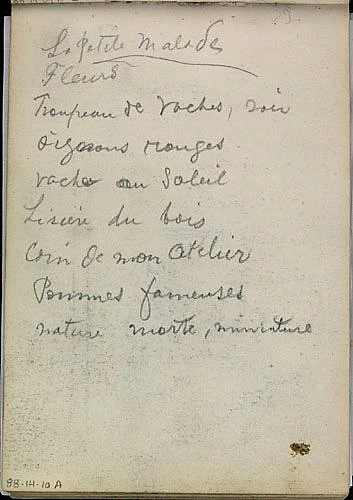 La Petite Malade
Fleurs
Troupeau de Vaches, soir
Oignons rouges
Vache au Soleil
Lisière du bois
Coin de mon Atelier
Pommes fameuses
nature morte, miniature
88-14-10 A